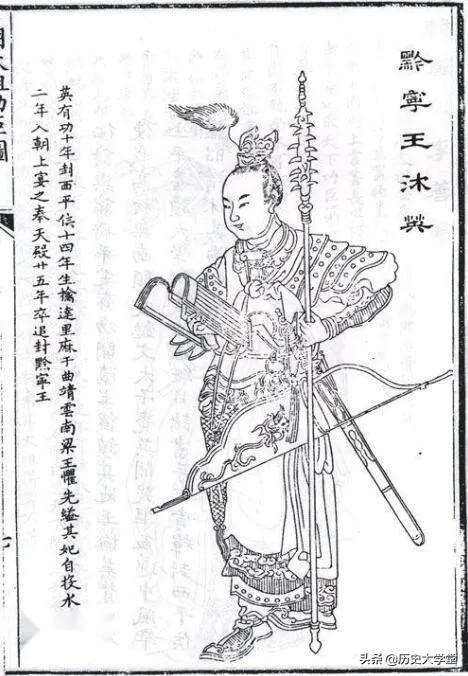 黔寧王沐英
英有功十年封西平侯十四年生擒達里麻于曲靖雲南梁王懼先縊其妃自投水
二年入朝上宴之奉天殿廿五年卒追封黔寧王
头条 @历史大学堂